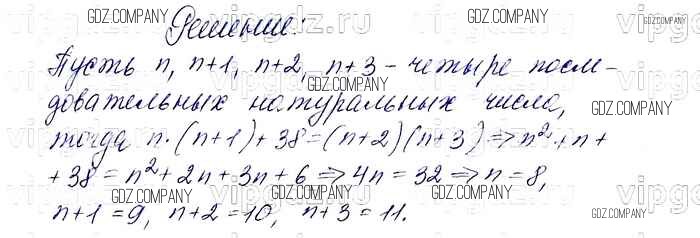 Решение:
Пусть n, n+1, n+2, n+3 – четыре посл-
довательных натуральных числа,
тогда n·(n+1)+38=(n+2)(n+3)⇒n²+n+
+38=n²+2n+3n+6⇒4n=32⇒n=8,
n+1=9, n+2=10, n+3=11.
GDZ.COMPANY
GDZ.COMPANY
GDZ.COMPANY
GDZ.COMPANY
GDZ.COMPANY
GDZ.COMPANY
GDZ.COMPANY
GDZ.COMPANY
GDZ.COMPANY
GDZ.COMPANY